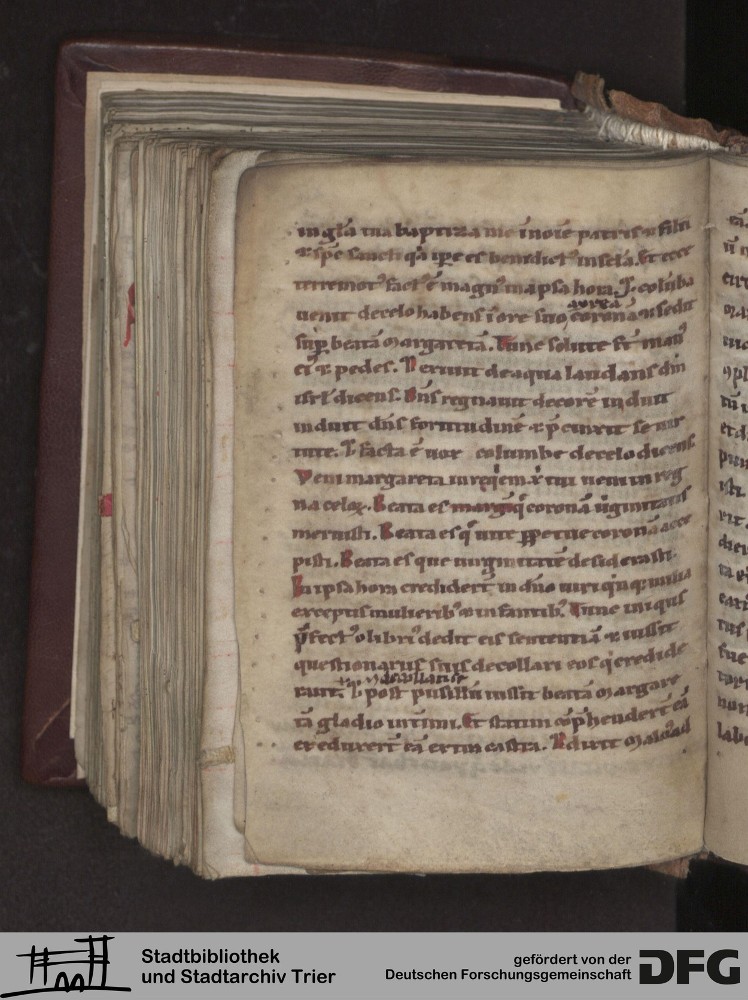 in gl̄a tua baptiza me ĩnoīe patris ⁊ filii
⁊ sp̄c sancti q̇a ip̄e es benedict᷒ in scl̄a. Et ecce
terremot᷒ fact᷒ ē magn᷒ in ipsa hora. ⁊ colūba
aurea
uenit de celo habens ĩ ore suo coronā ⁊ sedit
sup̲ beatā margaretā. Tunc solute st̄ man᷒
ei᷒ ⁊ pedes. de aqua laudans dm̄
isrl̄ dicens. Dn̄s regnauit decorē induit
induit dn̄s fortitudinē ⁊ p̄cinxit se uir
tute. ⁊ facta ē uox columbe de celo dicens.
Veni margareta in req̇ēm x̄p̄i tui ueni in reg
na celoꝝ. Beata es q̇ coronā ũginitatis
meruisti. Beata es q̇ uite ꝑpetue coronā acce
pisti. Beata es que uirginitatē desiderasti.
In ipsa hora credidert̄ in dño uiri q̇nq; milia
exceptis mulierib᷒ ⁊ infantib᷒. Tunc iniqus
p̄fect᷒ olibri᷒ dedit eis sententiā ⁊ iussit
questionarus suis decollari eos q̇ credide
runt. ⁊ post pusillũ iussit beatā margare
tā gladio Et statim cōp̄hendert̄ eā
et eduxert̄ eā extra castra. Et dixit malc᷒ ad
Stadtbibliothek
und Stadtarchiv Trier
gefördert von der
Deutschen Forschungsgemeinschaft
DFG